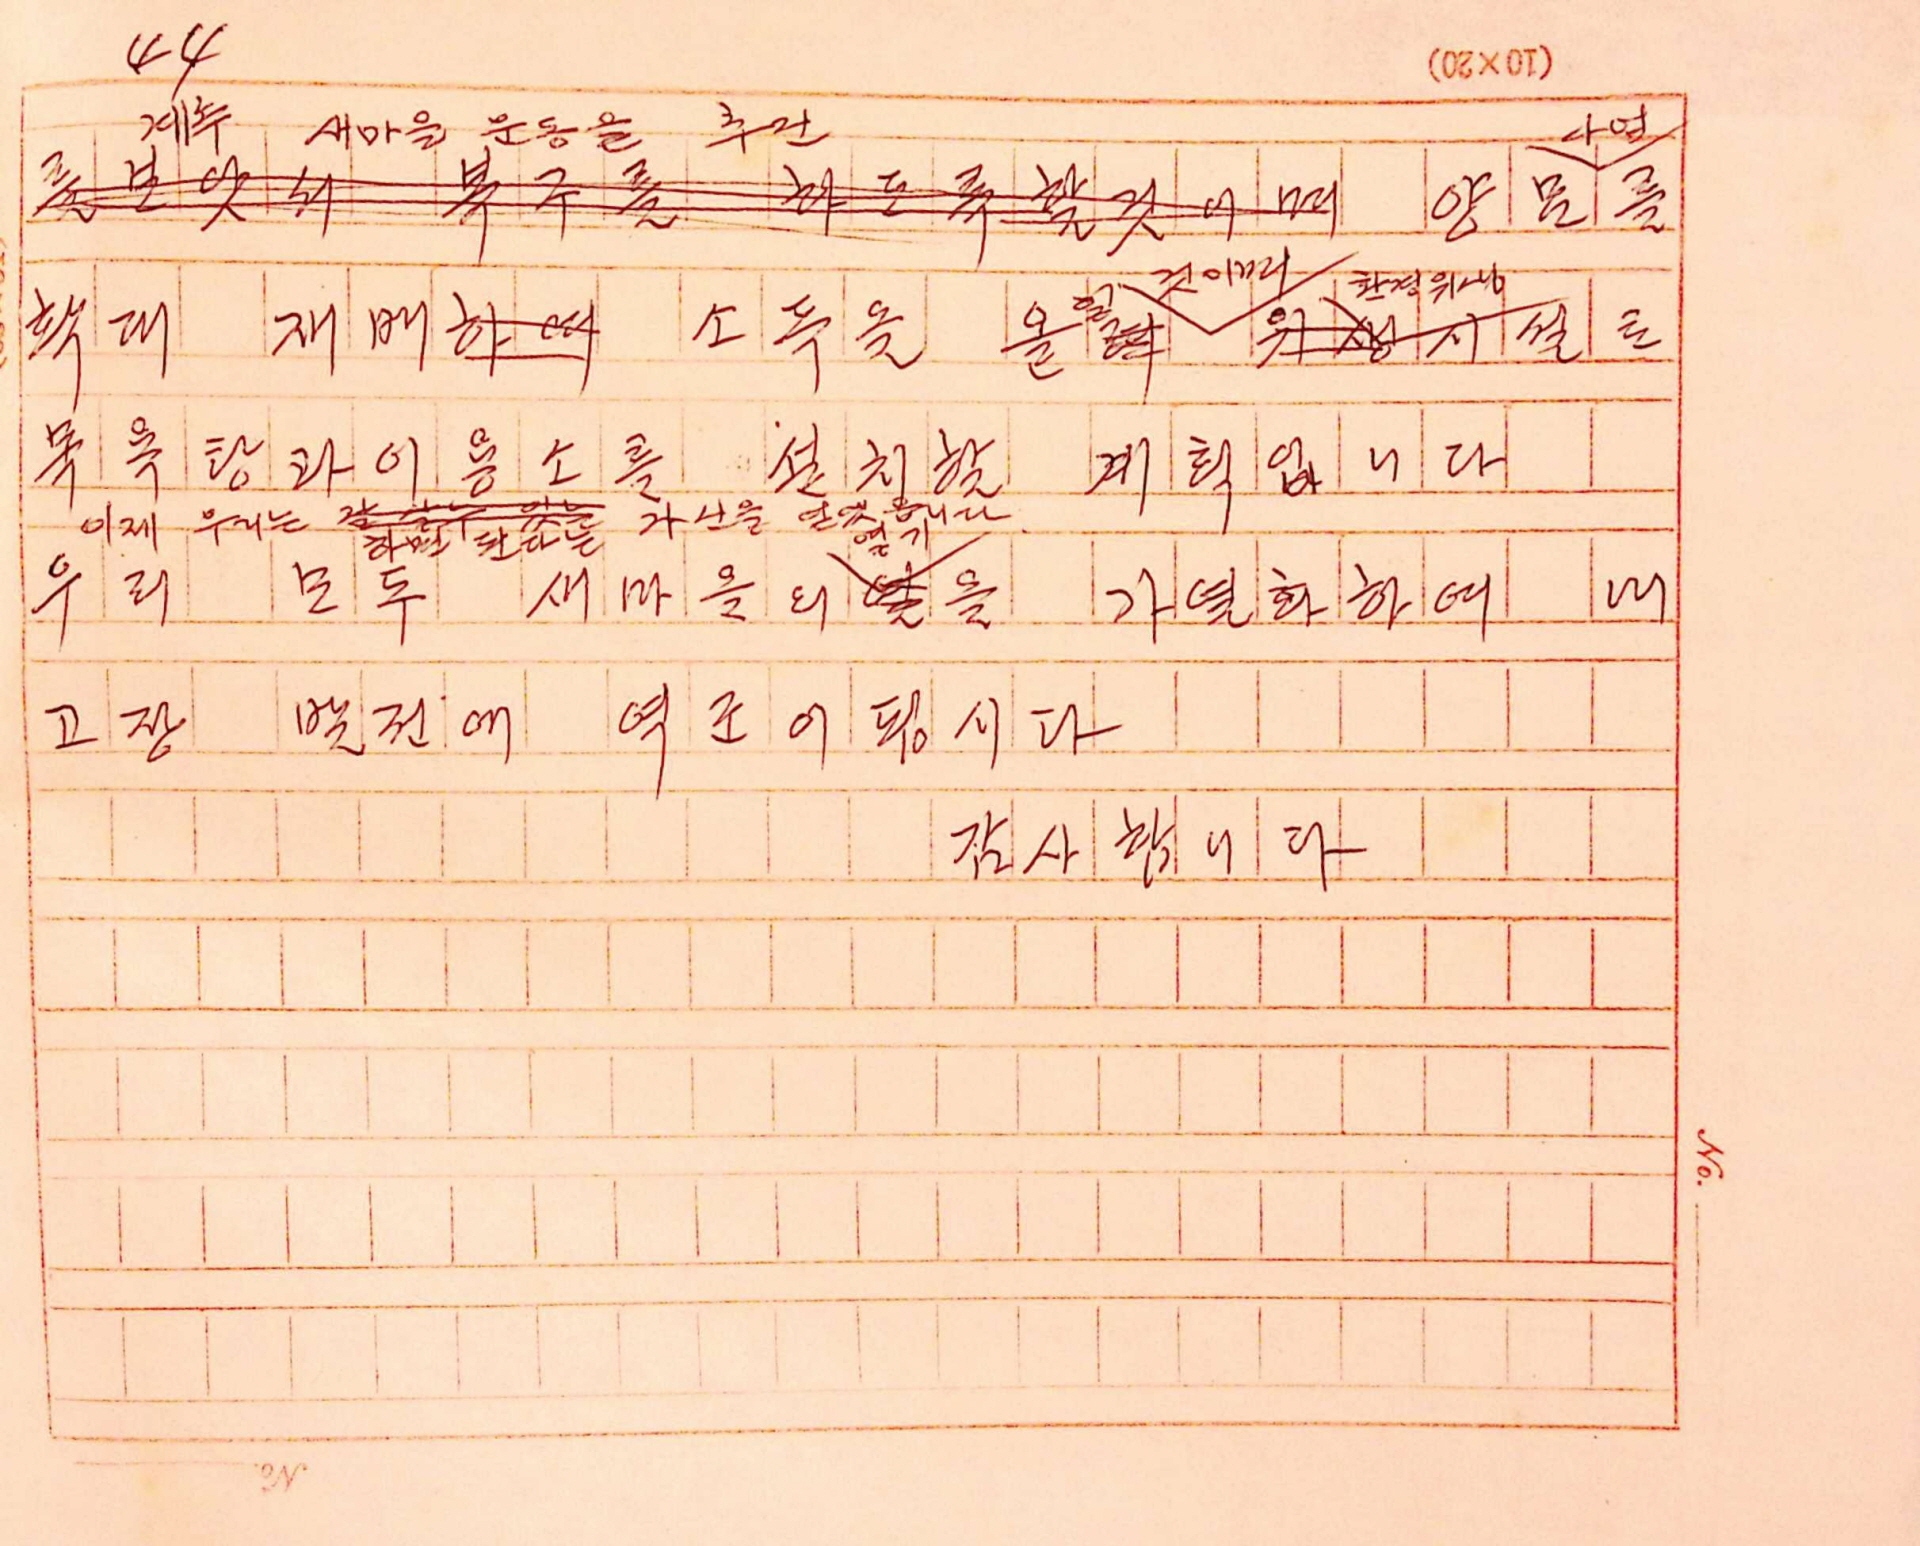 44
(10×20)
계속 새마을 운동을 추진
사업
를 본 앗 의 복구를 하도록 할것이며 양묘를
확대 재배하여 소득을 올
것이끼러 환경위생
위생시설도
목욕탕과이용소를 설치할 계획입니다
이제 우리는 가산을
우리 모두 새마을의 을 가열화하여 내
열기
고장 발전에 역군이됩시다
감사합니다
No.
No.